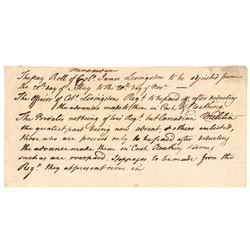 Memorandum
The pay Roll of Colo. James Livingston to be adjusted from
the 20th day of May to the 20th Day of Novr —
The officers of Colo. Livingstons Regt. to be paid off after deducting
the advances made them in Cash & Cloathing
The Privates nothing of his Regt. but Canadian Militia
the greatest part being now absent & others enlisted,
those who are present only to be paid after deducting
the advance made them in Cash Cloathing
such as are overpaid Stoppages to be made from the
Regt. they at present serve in